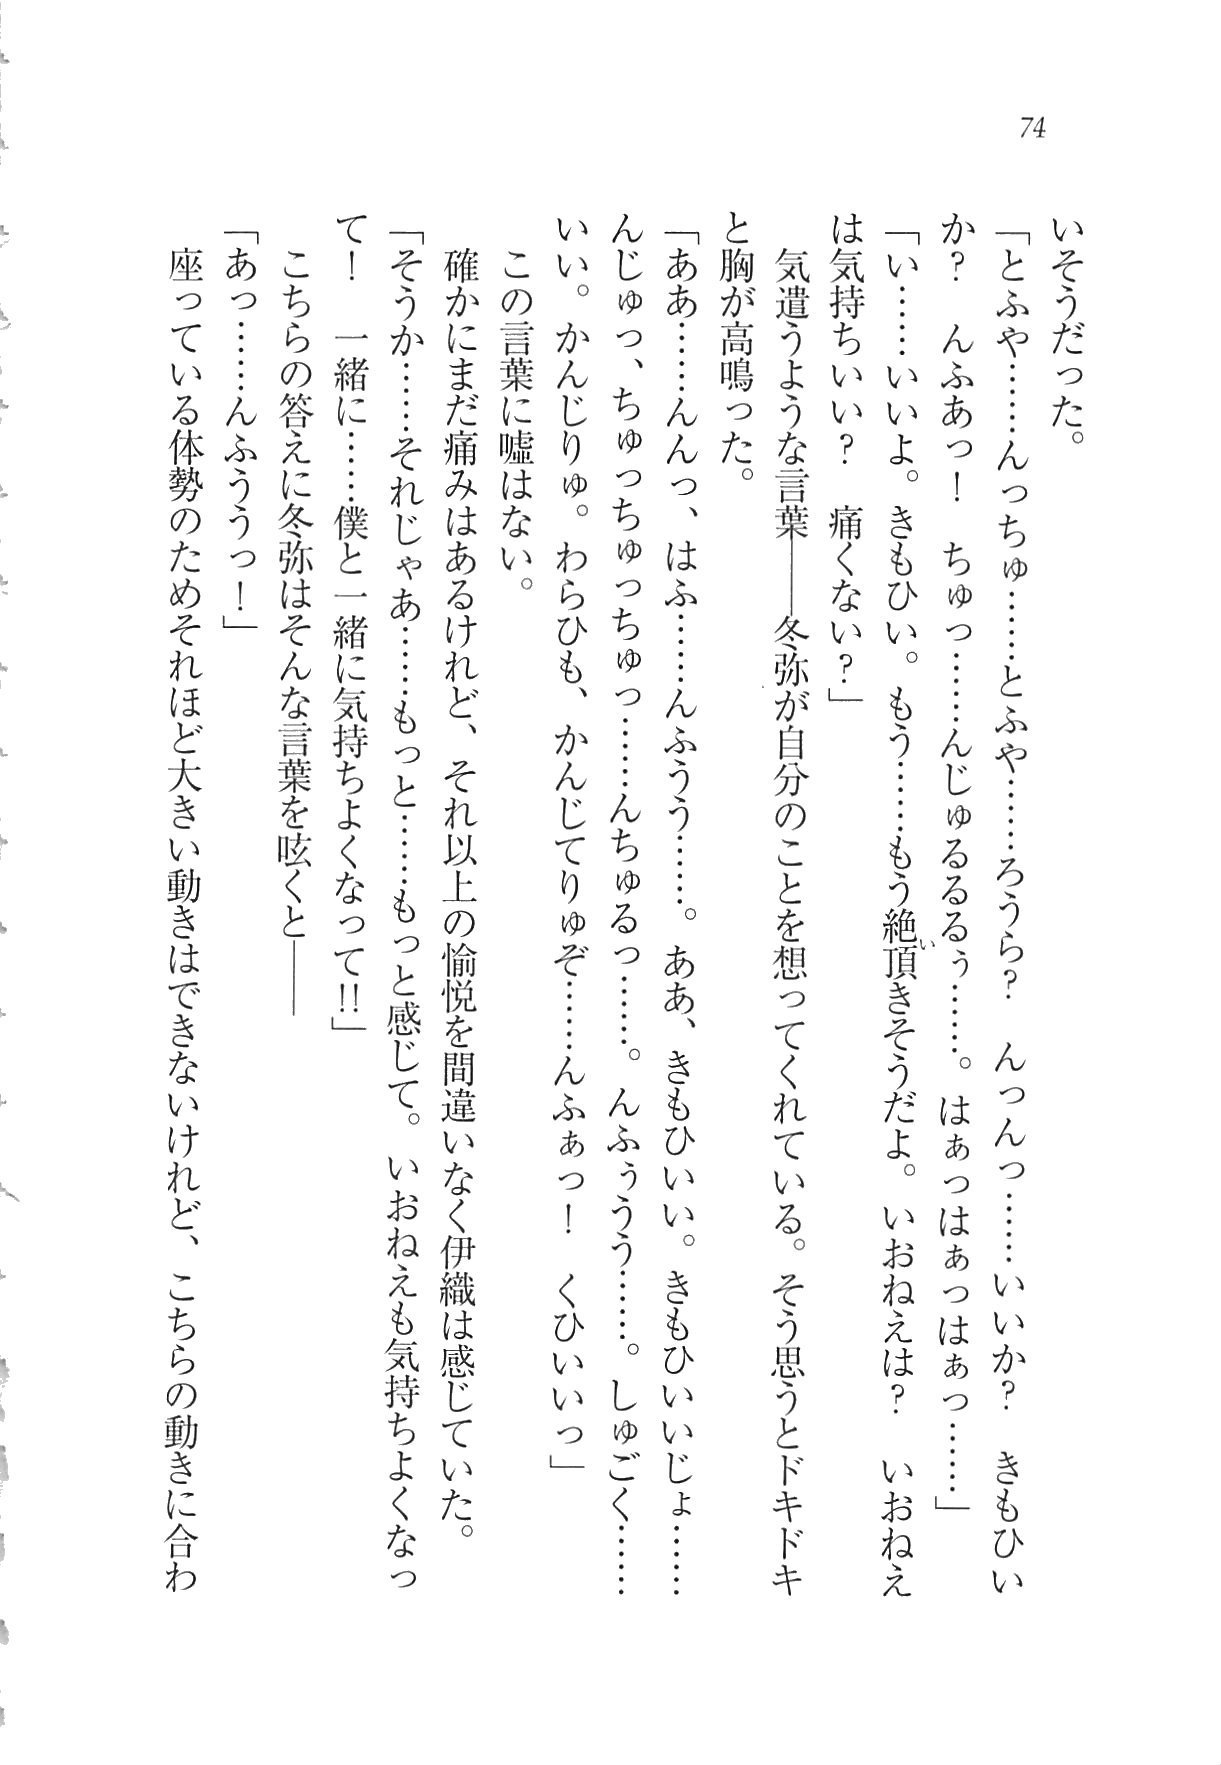 74
いそうだった。
「とふや……んっちゅ……とふや……ろうら？　んっんっ……いいか？　きもひい
か？　んふあっ！　ちゅっ……んじゅるるるぅ……。はぁっはぁっはぁっ……」
「い……いいよ。きもひい。もう……もう絶頂きそうだよ。いおねえは？　いおねえ
は気持ちいい？　痛くない？」
　気遣うような言葉――冬弥が自分のことを想ってくれている。そう思うとドキドキ
と胸が高鳴った。
「ああ……んんっ、はふ……んふうう……。ああ、きもひいい。きもひいいじょ……
んじゅっ、ちゅっちゅっちゅっ……んちゅるっ……。んふぅうう……。しゅごく……
いい。かんじりゅ。わらひも、かんじてりゅぞ……んふぁっ！　くひいいっ」
　この言葉に嘘はない。
　確かにまだ痛みはあるけれど、それ以上の愉悦を間違いなく伊織は感じていた。
「そうか……それじゃあ……もっと……もっと感じて。いおねえも気持ちよくなっ
て！　一緒に……僕と一緒に気持ちよくなって!!」
　こちらの答えに冬弥はそんな言葉を呟くと――
「あっ……んふううっ！」
　座っている体勢のためそれほど大きい動きはできないけれど、こちらの動きに合わ